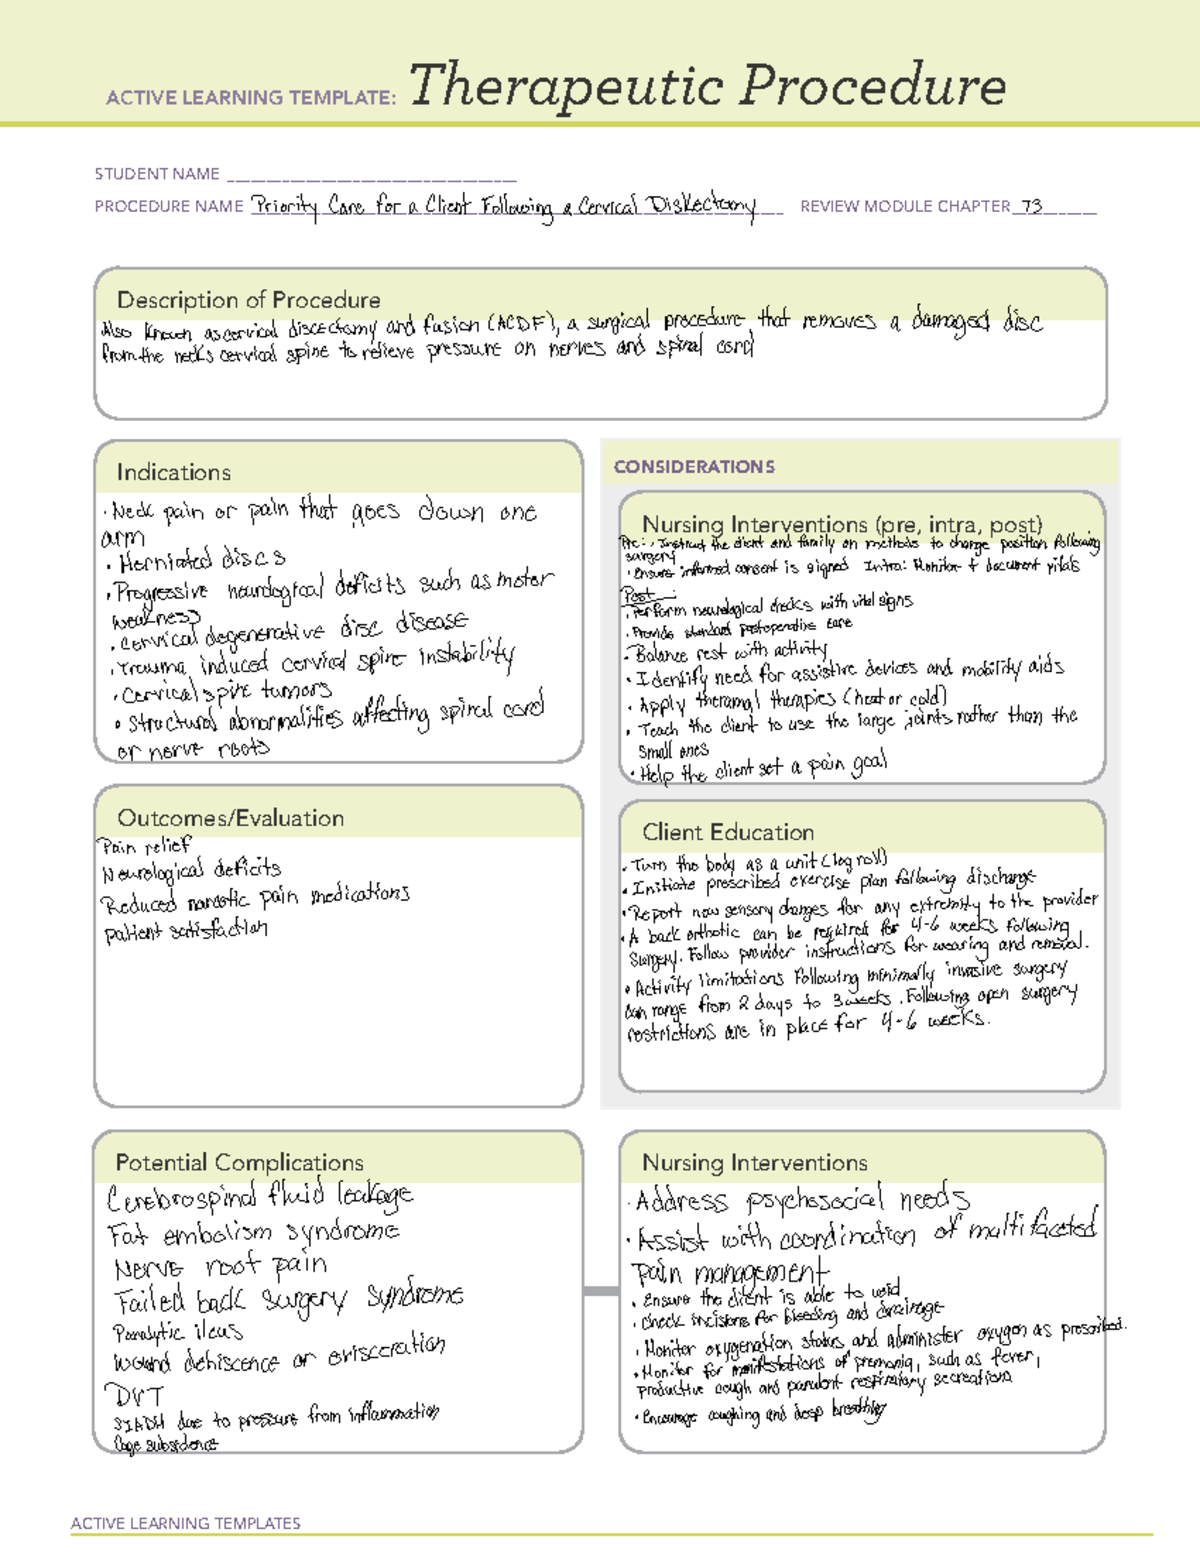 ACTIVE LEARNING TEMPLATE: Therapeutic Procedure
STUDENT NAME
PROCEDURE NAME Priority Care for a Client Following a Cervical Diskectomy REVIEW MODULE CHAPTER 73
Description of Procedure
Also known as cervical discectomy and fusion (ACDF), a surgical procedure that removes a damaged disc
from the necks cervical spine to relieve pressure on nerves and spinal cord
Indications
· Neck pain or pain that goes down one
arm
· Herniated discs
· Progressive neurological deficits such as motor
weakness
· Cervical degenerative disc disease
· Trauma induced cervical spine instability
· Cervical spine tumors
· Structural abnormalities affecting spinal cord
or nerve roots
CONSIDERATIONS
Nursing Interventions (pre, intra, post)
Pre: · Instruct the client and family on methods to change position following
surgery
· Ensure informed consent is signed Intra: Monitor + document vitals
Post:
· Perform neurological checks with vital signs
· Provide standard postoperative care
· Balance rest with activity
· Identify need for assistive devices and mobility aids
· Apply theramal therapies (heat or cold)
· Teach the client to use the large joints rather than the
small ones
· Help the client set a pain goal
Outcomes/Evaluation
Pain relief
Neurological deficits
Reduced narcotic pain medications
patient satisfaction
Client Education
· Turn the body as a unit (log roll)
· Initiate prescribed exercise plan following discharge
· Report new sensory changes for any extremity to the provider
· A back orthotic can be required for 4-6 weeks following
surgery. Follow provider instructions for wearing and removal.
· Activity limitations following minimally invasive surgery
can range from 2 days to 3 weeks. Following open surgery
restrictions are in place for 4-6 weeks.
Potential Complications
Cerebrospinal fluid leakage
Fat embolism syndrome
Nerve root pain
Failed back surgery syndrome
Paralytic ileus
Wound dehiscence or evisceration
DVT
SIADH due to pressure from inflammation
Cage subsidence
Nursing Interventions
· Address psychosocial needs
· Assist with coordination of multifaceted
pain management
· Ensure the client is able to void
· Check incisions for bleeding and drainage
· Monitor oxygenation status and administer oxygen as prescribed.
· Monitor for manifestations of pneumonia, such as fever,
productive cough and purulent respiratory secreations
· Encourage coughing and deep breathing
ACTIVE LEARNING TEMPLATES